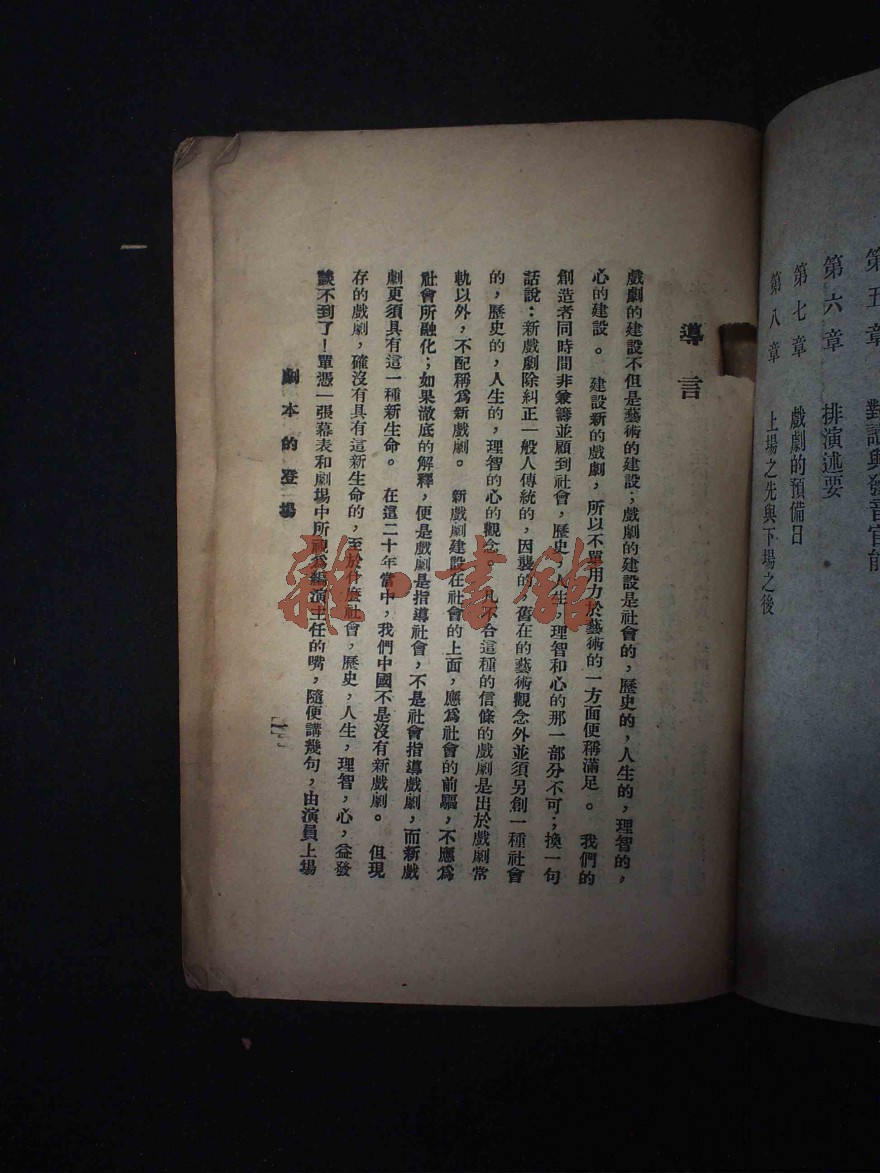 第五章　對話與發音官能
第六章　排演述要
第七章　戲劇的預備日
第八章　上場之先與下場之後
導言
戲劇的建設不但是藝術的建設；戲劇的建設是社會的，歷史的，人生的，理智的，
心的建設。　建設新的戲劇，所以不單用力於藝術的一方面便稱滿足。　我們的
創造者同時間非兼籌並顧到社會，歷史，人生，理智和心的那一部分不可；換一句
話說：新戲劇除糾正一般人傳統的，因襲的，舊在的藝術觀念外並須另創一種社會
的，歷史的，人生的，理智的心的觀念。凡不合這種的信條的戲劇是出於戲劇常
軌以外，不配稱爲新戲劇。　新戲劇建設在社會的上面，應爲社會的前驅，不應爲
社會所融化；如果澈底的解釋，便是戲劇是指導社會，不是社會指導戲劇，而新戲
劇更須具有這一種新生命。　在這二十年當中，我們中國不是沒有新戲劇。　但現
存的戲劇，確沒有具有這新生命的，至於什麼社會，歷史，人生，理智，心，益發
談不到了！單憑一張幕表和劇場中所視爲編演主任的嘴，隨便講幾句，由演員上場
劇本的登場
一
雜·書館